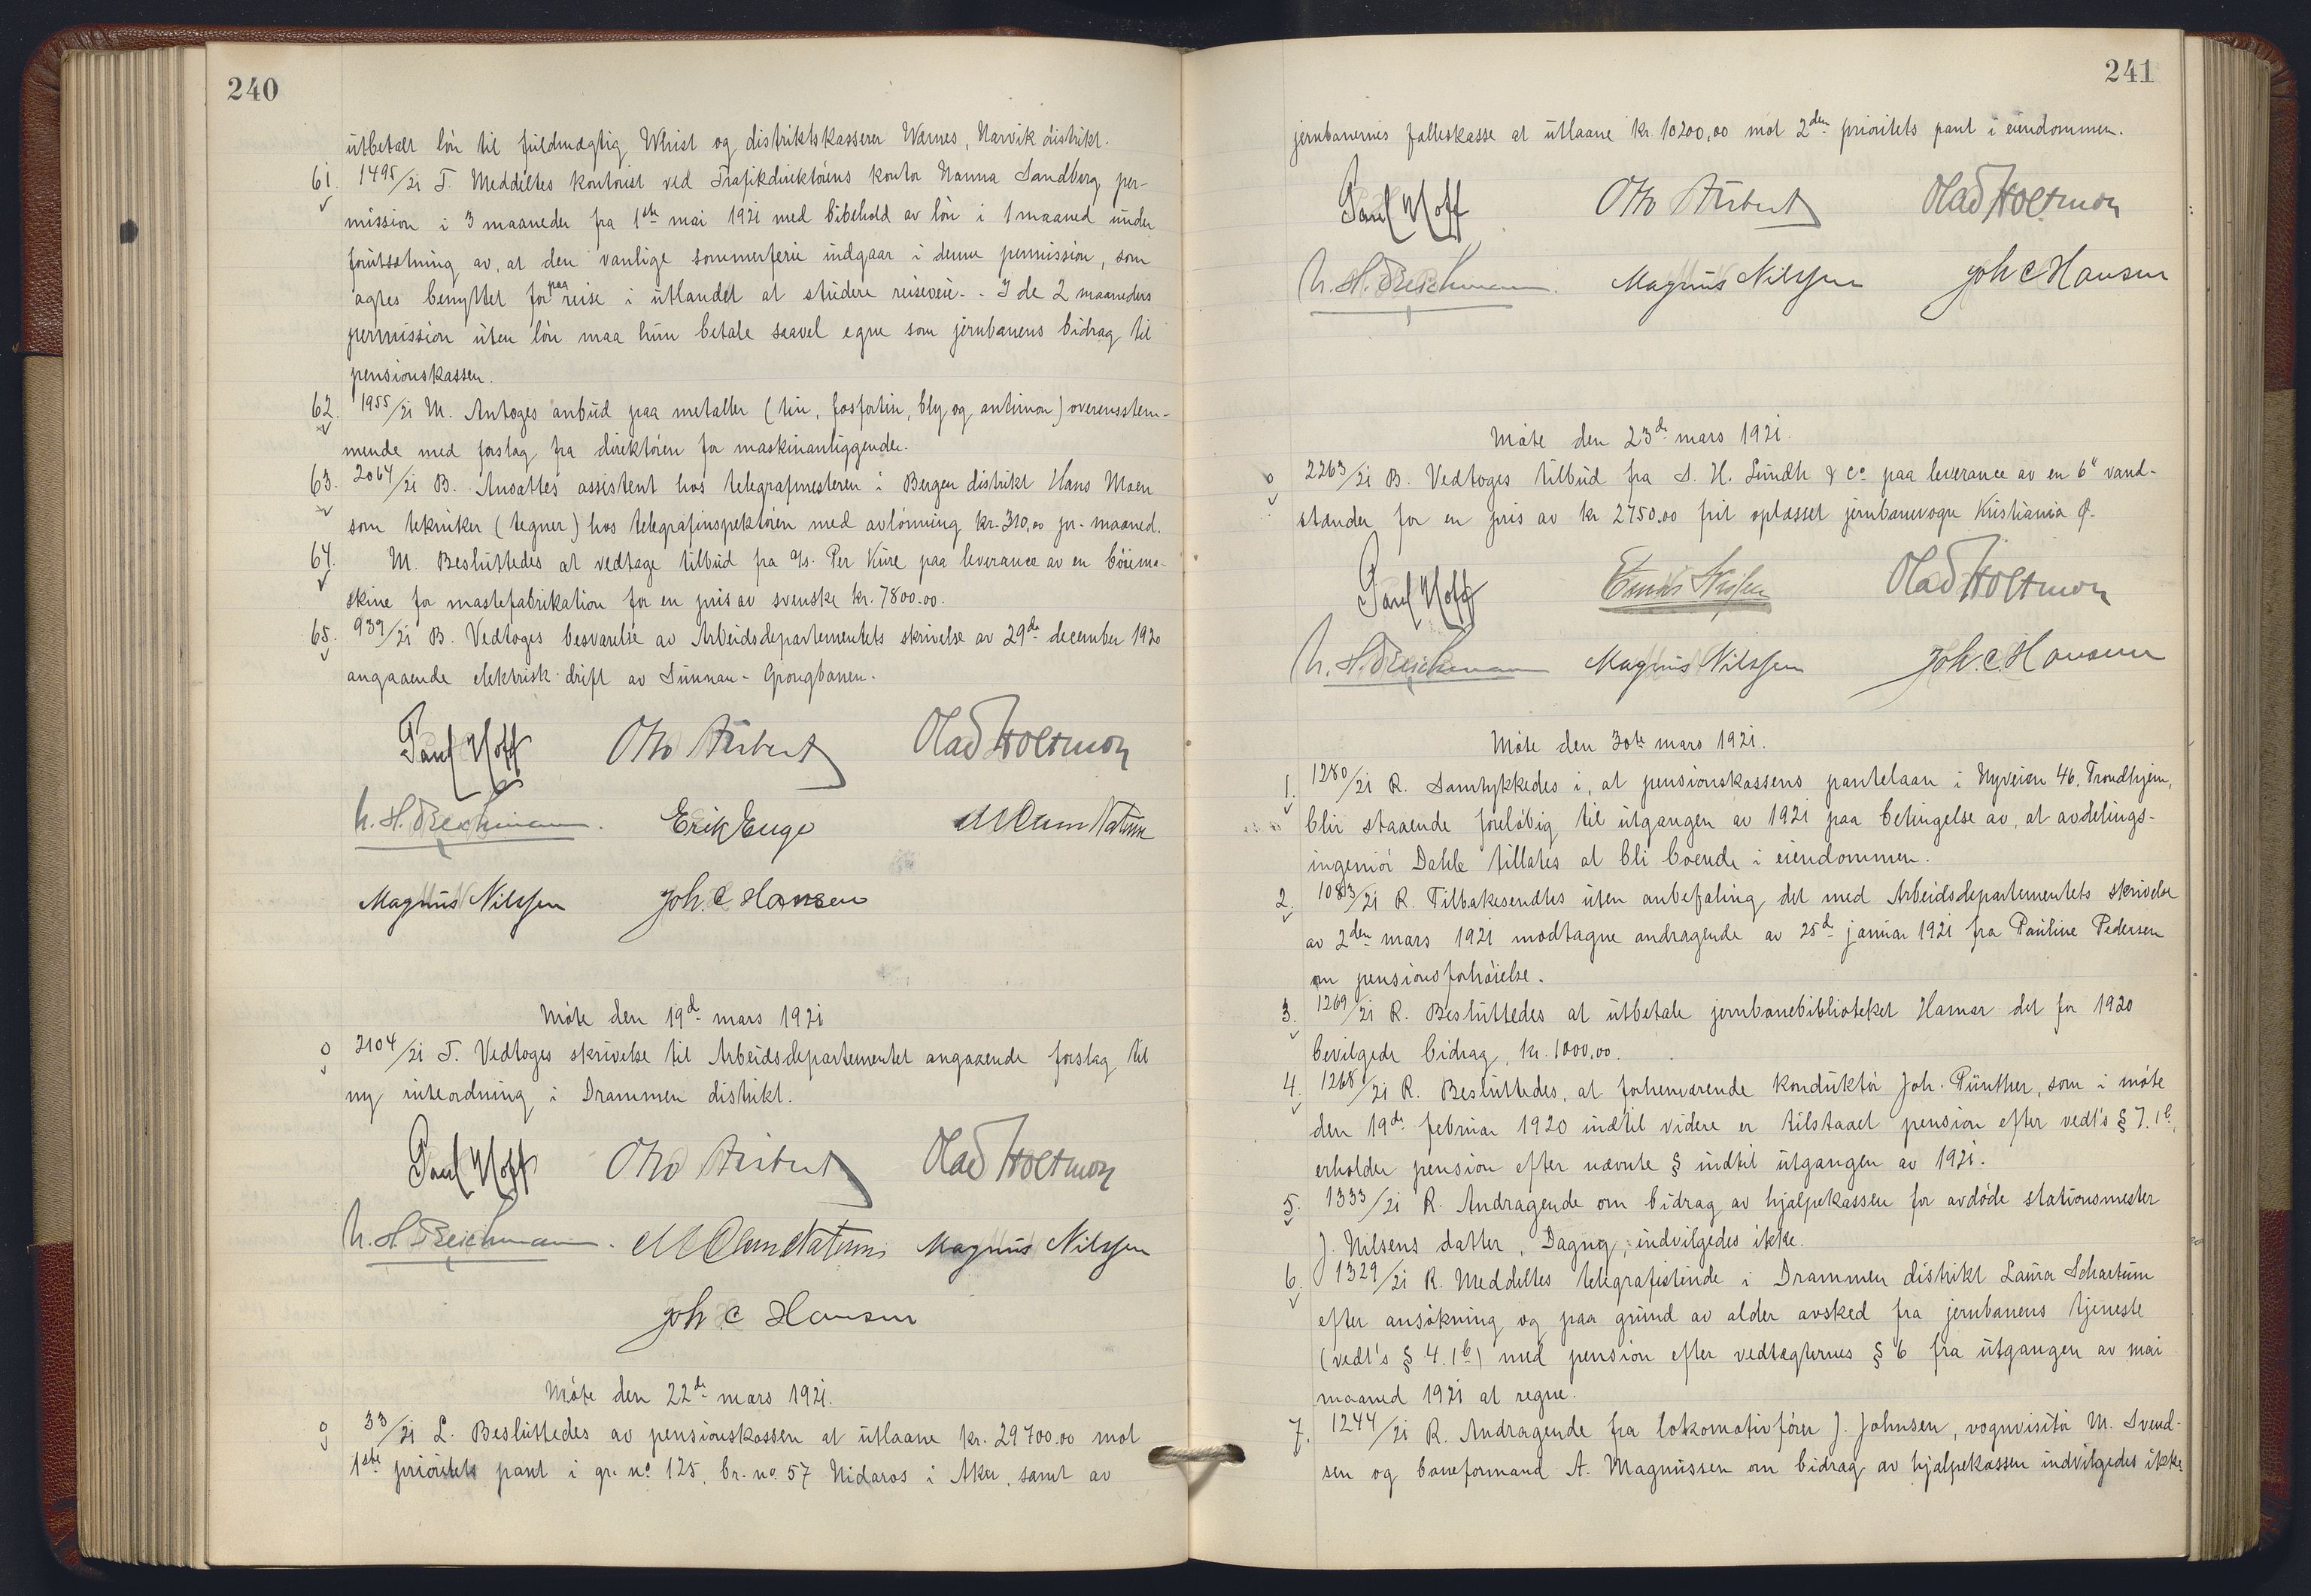 240
utbetalt løn til fuldmægtig Whist og distriktskasserer Wærnes, Narvik distrikt.
61. 1495/21 T. Meddeltes kontorist ved Trafikdirektørens kontor Nanna Sandberg per-
mission i 3 maaneder fra 1ste mai 1921 med bibehold av løn i 1 maaned under
forutsætning av, at den vanlige sommerferie indgaar i denne permission, som
agtes benyttet for paa reise i utlandet at studere reiseveie. - I de 2 maaneders
permission uten løn maa hun betale saavel egne som jernbanens bidrag til
pensionskassen.
62. 1955/21 M. Antoges anbud paa metaller (tin, fosfortin, bly og antimon) overensstem-
mende med forslag fra direktøren for maskinanliggender.
63. 2064/21 B. Ansattes assistent hos telegrafmesteren i Bergen distrikt Hans Moen
som tekniker (tegner) hos telegrafinspektøren med avlønning kr. 310,00 pr. maaned.
64. M. Besluttedes at vedtage tilbud fra A/S. Per Kure paa leverance av en bøiema-
skine for mastefabrikation for en pris av svenske kr. 7800.00.
65. 939/21 B. Vedtoges besvarelse av Arbeidsdepartementets skrivelse av 29de december 1920
angaaende elektrisk drift av Sunnan - Grongbanen.
Paul Hoff Otto Aubert Olaf Holtmon
Magnus Nilssen Joh. C Hansen
Møte den 19de mars 1921
0 2104/21 T. Vedtoges skrivelse til Arbeidsdepartementet angaaende forslag til
ny ruteordning i Drammen distrikt.
Paul Hoff Otto Aubert Olaf Holtmon
Magnus Nilssen
Joh C Hansen
Møte den 22de mars 1921.
0 33/21 L. Besluttedes av pensionskassen at utlaane kr. 29700.00 mot
1ste prioritets pant i gr. no 125, br. no. 57 Nidaros i Aker, samt av
241
jernbanernes fælleskasse at utlaane kr. 10200,00 mot 2den prioritets pant i eiendommen.
Paul Hoff Otto Aubert Olaf Holtmon
Magnus Nilssen Joh C Hansen
Møte den 23de mars 1921.
0 2263/21 B. Vedtoges tilbud fra S. H. Lundh & Co paa leverance av en 6" vand-
stander for en pris av kr 2750.00 frit oplæsset jernbanevogn Kristiania Ø.
Paul Hoff Olaf Holtmon
Magnus Nilssen Joh. C. Hansen
Møte den 30te mars 1921.
1. 1280/21 R. Samtykkedes i, at pensionskassens pantelaan i Nyveien 46, Trondhjem,
blir staaende foreløbig til utgangen av 1921 paa betingelse av, at avdelings-
ingeniør Dahle tillates at bli boende i eiendommen.
2. 1083/21 R. Tilbakesendtes uten anbefaling det med Arbeidsdepartementets skrivelse
av 2den mars 1921 modtagne andragende av 25de januar 1921 fra Pauline Pedersen
om pensionsforhøielse.
3. 1269/21 R. Besluttedes at utbetale jernbanebiblioteket Hamar det for 1920
bevilgede bidrag, kr. 1000,00.
4. 1268/21 R. Besluttedes, at forhenværende konduktør Joh. Pünther, som i møte
den 19de februar 1920 indtil videre er tilstaaet pension efter vedt's § 7.1b,
erholder pension efter nævnte § indtil utgangen av 1921.
5. 1333/21 R. Andragende om bidrag av hjælpekassen for avdøde stationsmester
J. Nilsens datter, Dagny, indvilgedes ikke.
6. 1329/21 R. Meddeltes telegrafistinde i Drammen distrikt Laura Schartum
efter ansøkning og paa grund av alder avsked fra jernbanens tjeneste
(vedt's § 4.1b) med pension efter vedtægternes § 6 fra utgangen av mai
maaned 1921 at regne.
7. 1244/21 R. Andragende fra lokomotivfører J. Johnsen, vognvisitør M. Svend-
sen og baneformand A. Magnussen om bidrag av hjælpekassen indvilgedes ikke